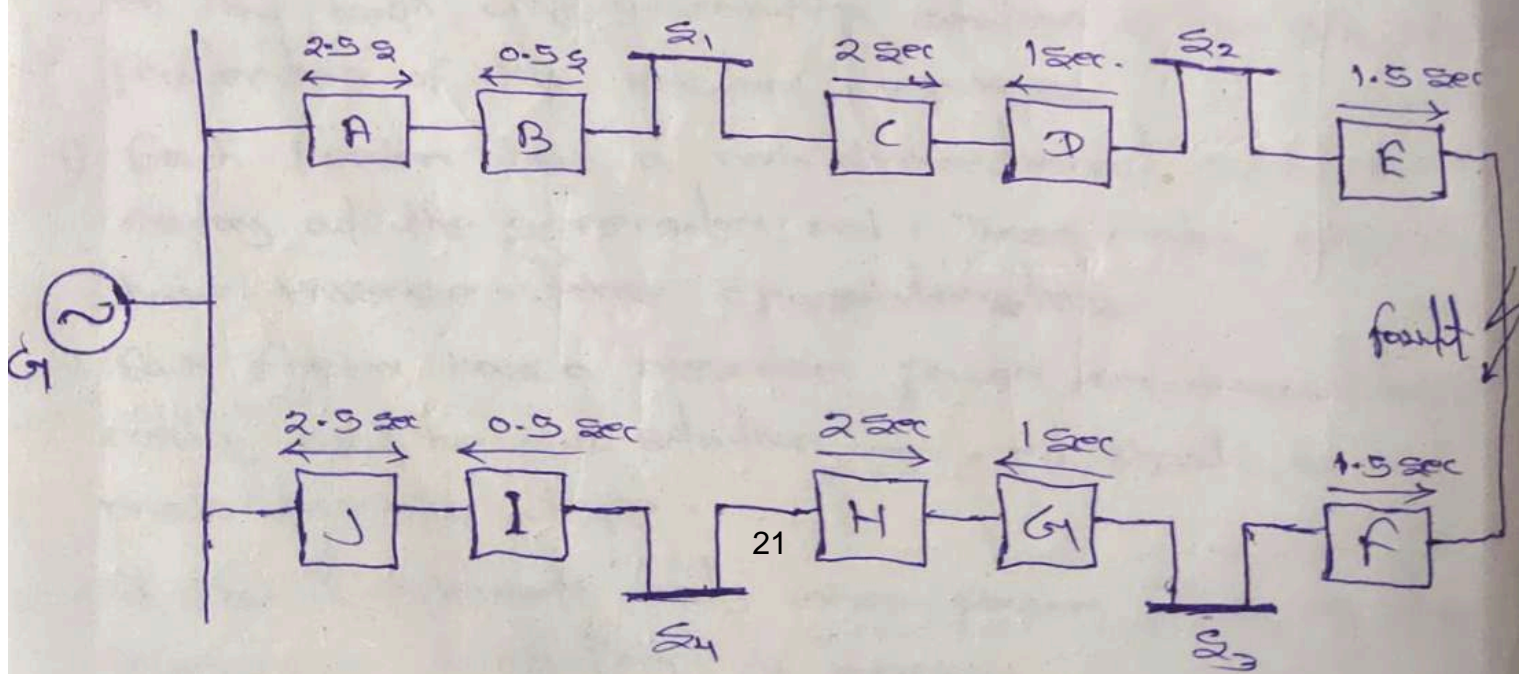 2.5 S 0.5 S S1 2 Sec 1 Sec. S2 1.5 Sec
A B C D E
G
fault
2.5 Sec 0.5 Sec 2 Sec 1 Sec 1.5 Sec
J I H G F
21
S4 S3